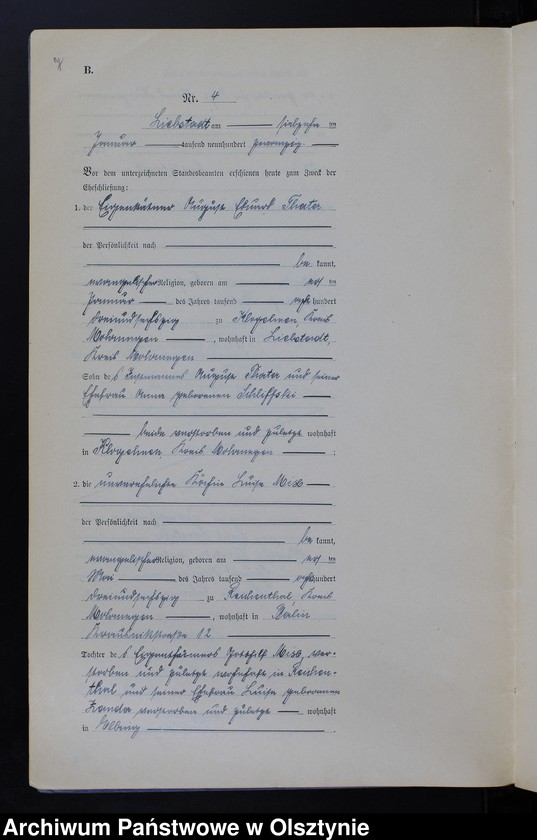 B.
Nr. 4
Liebstadt am siebzehn ten
Januar tausend neunhundert zwanzig
Vor dem unterzeichneten Standesbeamten erschienen heute zum Zweck der
Eheschließung:
1. der Eigenkätner August Eduard Thater
der Persönlichkeit nach
be kannt,
evangelischer Religion, geboren am ten
Januar des Jahres tausend acht hundert
dreiundsechszig zu Klogehnen, Kreis
Mohrungen, wohnhaft in Liebstadt,
Kreis Mohrungen
Sohn des Instmannes August Thater und seiner
Ehefrau Anna geborenen Schliffski
beide verstorben und zuletzt wohnhaft
in Klogehnen, Kreis Mohrungen ;
2. die unverehelichte Köchin Luise Mess
der Persönlichkeit nach
be kannt,
evangelischer Religion, geboren am ten
Mai des Jahres tausend acht hundert
dreiundsechszig zu Reichenthal, Kreis
Mohrungen, wohnhaft in Berlin
12
Tochter des Eigenkätners Gottlieb Mess, ver-
storben und zuletzt wohnhaft in Reichen-
thal und seiner Ehefrau Luise geborenen
verstorben und zuletzt wohnhaft
in Elbing
Archiwum Państwowe w Olsztynie